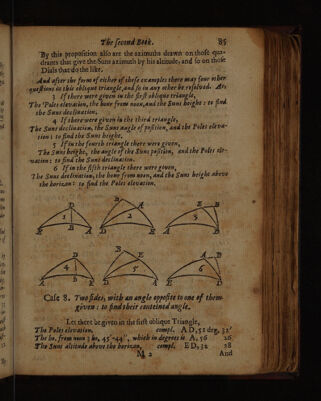 The second Book. 85
By this proposition also are the azimuths drawn on those qua-
drants that give the Suns azimuth by his altitude, and so on those
Dials that do the like.
And after the form of either of these examples there may four other
questions in this oblique triangle, and so in any other be resolved. As
3 If there were given in the first oblique triangle,
The Poles elevation, the houre from noon, and the Suns height : to find
the Suns declination.
4 If there were given in the third triangle,
The Suns declination, the Suns angle of position, and the Poles eleva-
tion : to find the Suns height.
5 If in the fourth triangle there were given,
The Suns height, the angle of the Suns position, and the Poles ele-
vation : to find the Suns declination.
6 If in the fifth triangle there were given,
The Suns declination, the houre from noon, and the Suns height above
the horizon : to find the Poles elevation.
D B A E B
1 2 3
E B A E D A D
D B E A B
4 5 6
A B E A D E D
Case 8. Two sides, with an angle opposite to one of them
given : to find their conteined angle.
Let there be given in the first oblique Triangle,
The Poles elevation. compl. A D, 51 deg. 32'
The ho. from noon 3 ho, 45'-44'', which in degrees is A, 56 26
The Suns altitude above the horizon, compl. E D, 32 58
M 2 And